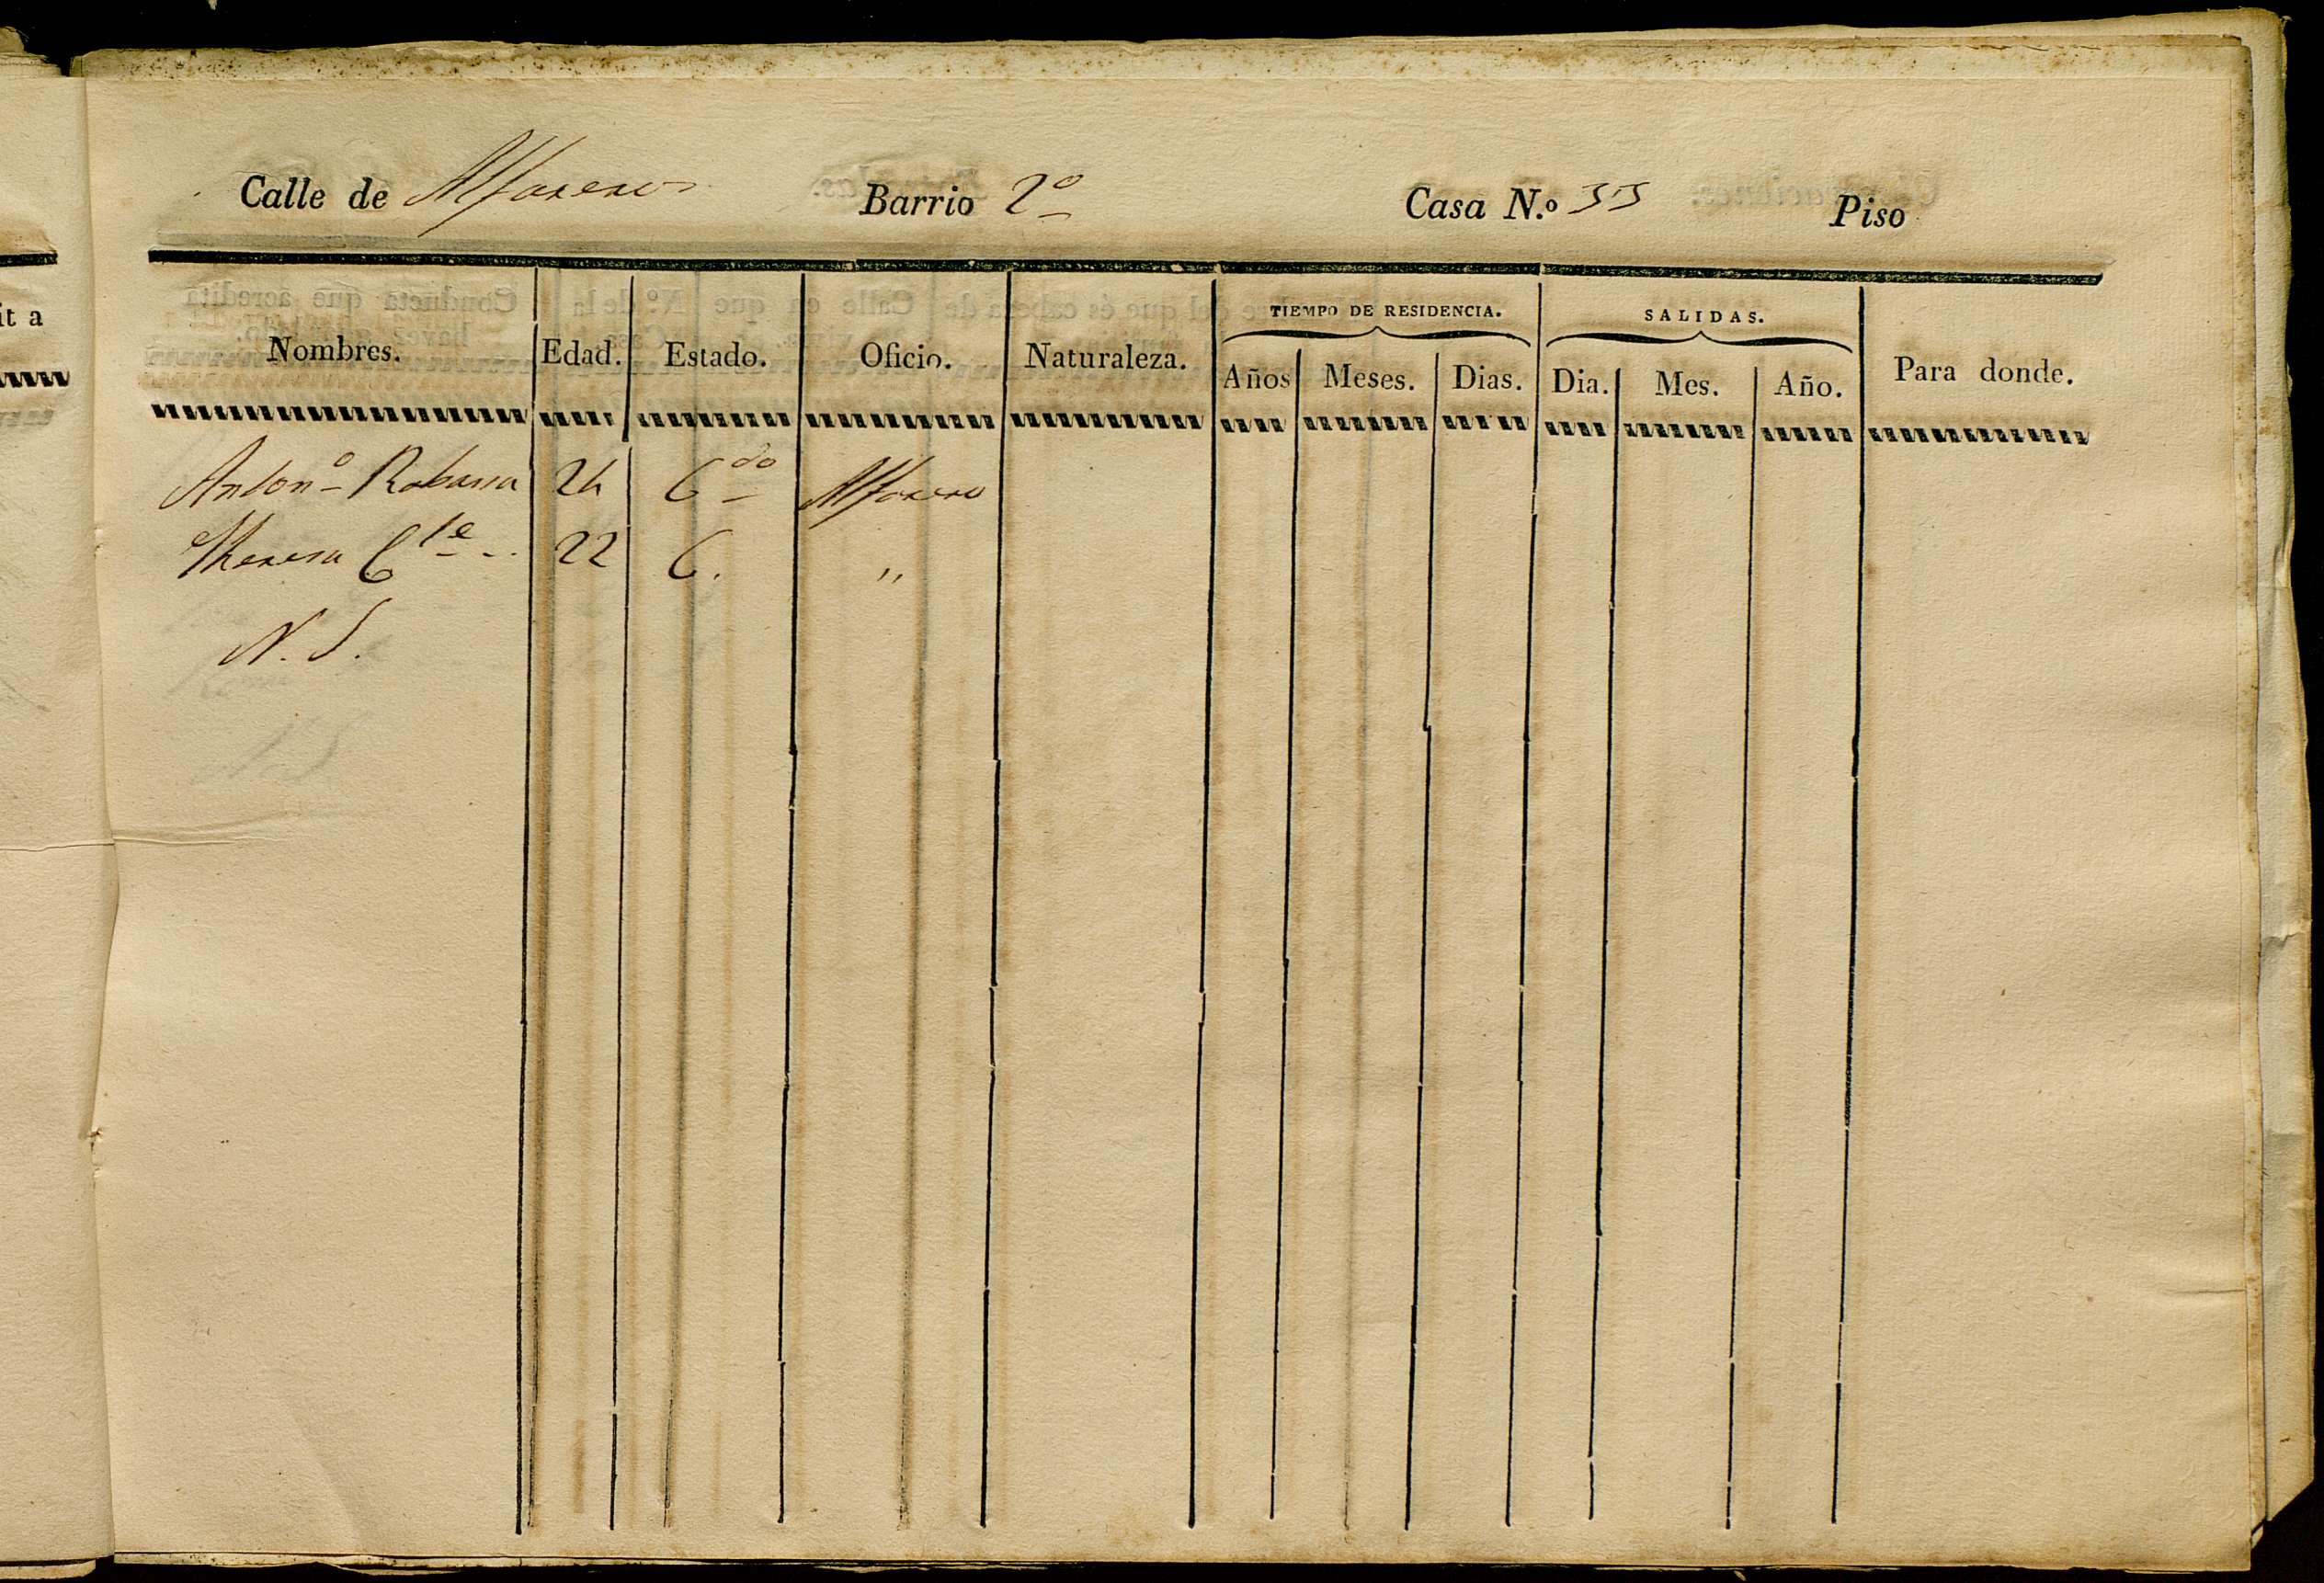 Calle de Alfareros Barrio 2º Casa N.º 33 Piso
it a
TIEMPO DE RESIDENCIA. SALIDAS.
Nombres. Edad. Estado. Oficio. Naturaleza. Años Meses. Dias. Dia. Mes. Año. Para donde.
Antonº Rabassa 24 Cdo Alfarero
Theresa Cte 22 C. "
N. S.